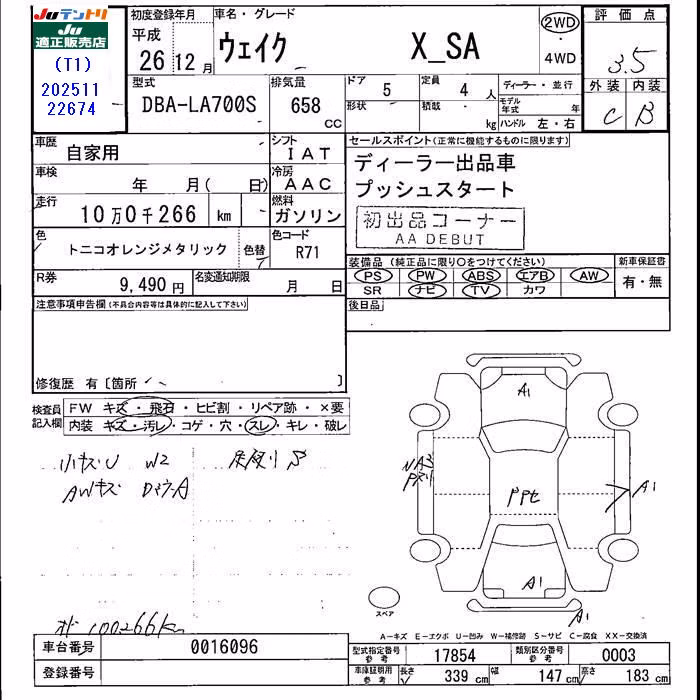 Juテントリ
Ju
適正販売店
(T1)
202511
22674
初度登録年月
平成
26年12月
車名・グレード
ウェイク X_SA
2WD
・
4WD
評価点
3.5
外装 内装
C B
型式
DBA-LA700S
排気量
658
CC
ドア
5
形状
定員
4人
積載
kg
ディーラー・並行
モデル年式 年
ハンドル 左・右
車歴
自家用
シフト
IAT
車検
年 月( 日)
冷房
AAC
走行
10万0千266 km
燃料
ガソリン
色
トニコオレンジメタリック
色替
色コード
R71
R券
9,490円
名変通知期限
月 日
セールスポイント(正常に機能するものに限ります)
ディーラー出品車
プッシュスタート
初出品コーナー
AA DEBUT
装備品(純正品に限り〇をつけてください)
PS PW ABS エアB AW
SR ナビ TV カワ
新車保証書
有・無
後日品
注意事項申告欄(不具合内容等は具体的に記入して下さい)
修復歴 有〔箇所 〕
検査員
記入欄
FW キズ・飛石・ヒビ割・リペア跡・×要
内装 キズ・汚レ・コゲ・穴・スレ・キレ・破レ
小キズU W2
AWキズ
100266km
A1
A1
A1
A1
スペア
A−キズ E−エクボ U−凹み W−補修跡 S−サビ C−腐食 XX−交換済
車台番号
0016096
登録番号
型式指定番号
参考
17854
類別区分番号
参考
0003
車庫証明用
参考
長さ
339 cm
幅
147 cm
高さ
183 cm